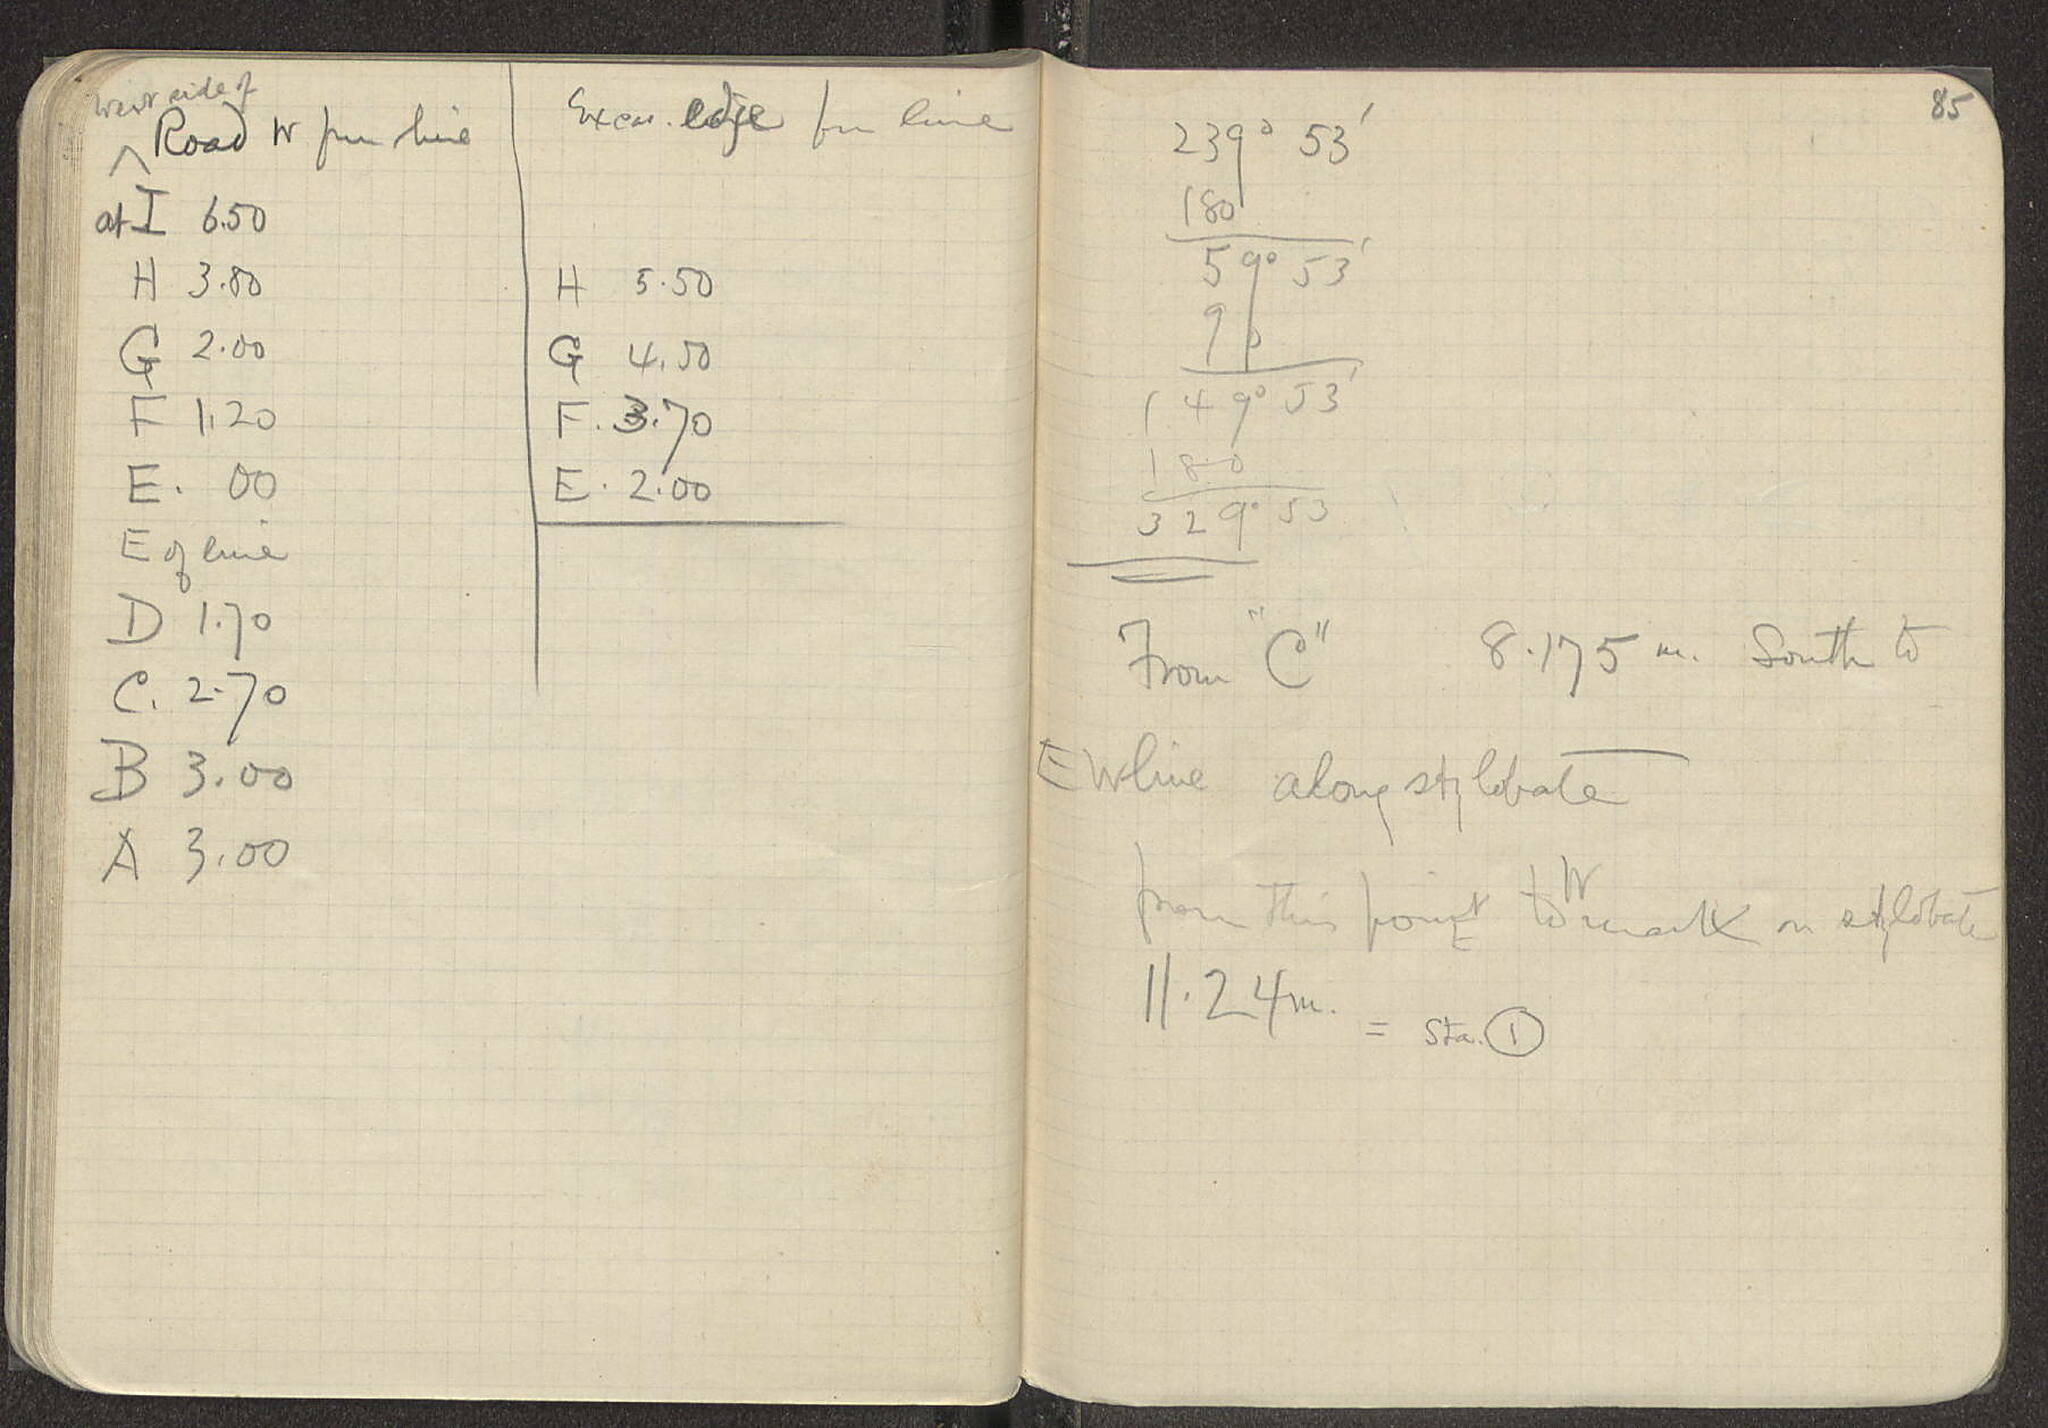 West side of
^ Road W from line
at I 6.50
H 3.80
G 2.00
F 1.20
E. 00
E of line
D 1.70
C. 2.70
B 3.00
A 3.00
Excav. edge from line
H 5.50
G 4.50
F. 3.70
E. 2.00
85
239° 53'
180
59° 53'
90
149° 53'
180
329° 53
From "C" 8.175 m. South to
EW line along stylobate
from this point to W mark on stylobate
11.24 m. = Sta. ①